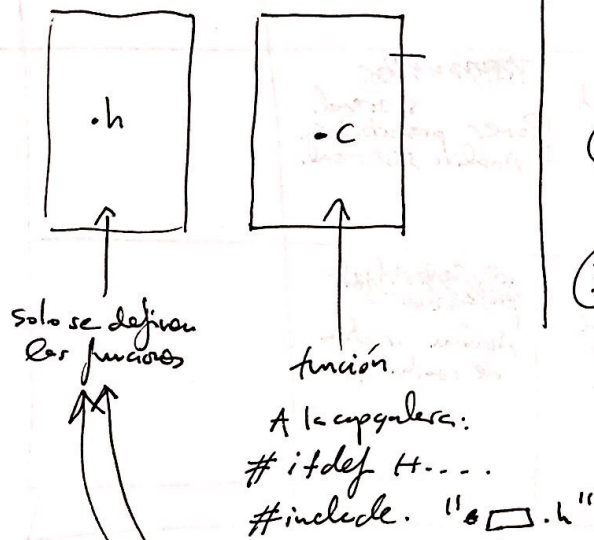 .h
.c
solo se definen
las funciones
función.
A la cabecera:
# ifdef H....
#include. " .h"